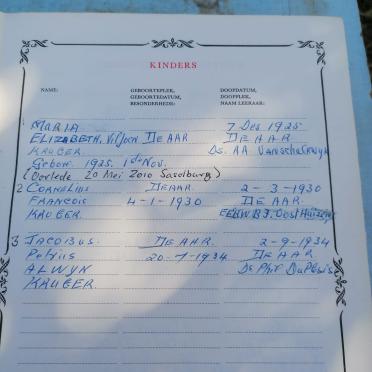 KINDERS
NAME: GEBOORTEPLEK, DOOPDATUM,
GEBOORTEDATUM, DOOPPLEK,
BESONDERHEDE: NAAM LERAAR:
1 MARIA 7 Des 1925
ELIZABETH. Viljoen DE AAR DE AAR
KRUGER Ds. AA Van Schalkwyk
Gebore. 1925. 1ste Nov.
(Oorlede 20 Mei 2010 Sasolburg)
2 CORNELIUS DE AAR. 2-3-1930
FRANCOIS 4-1-1930 DE AAR.
KRUGER EERW. B.J. Oosthuizen
3 JACOBUS. DE AAR. 2-9-1934
Petrus 20-7-1934 DE AAR
ALWYN Ds Phil Du Plessis
KRUGER